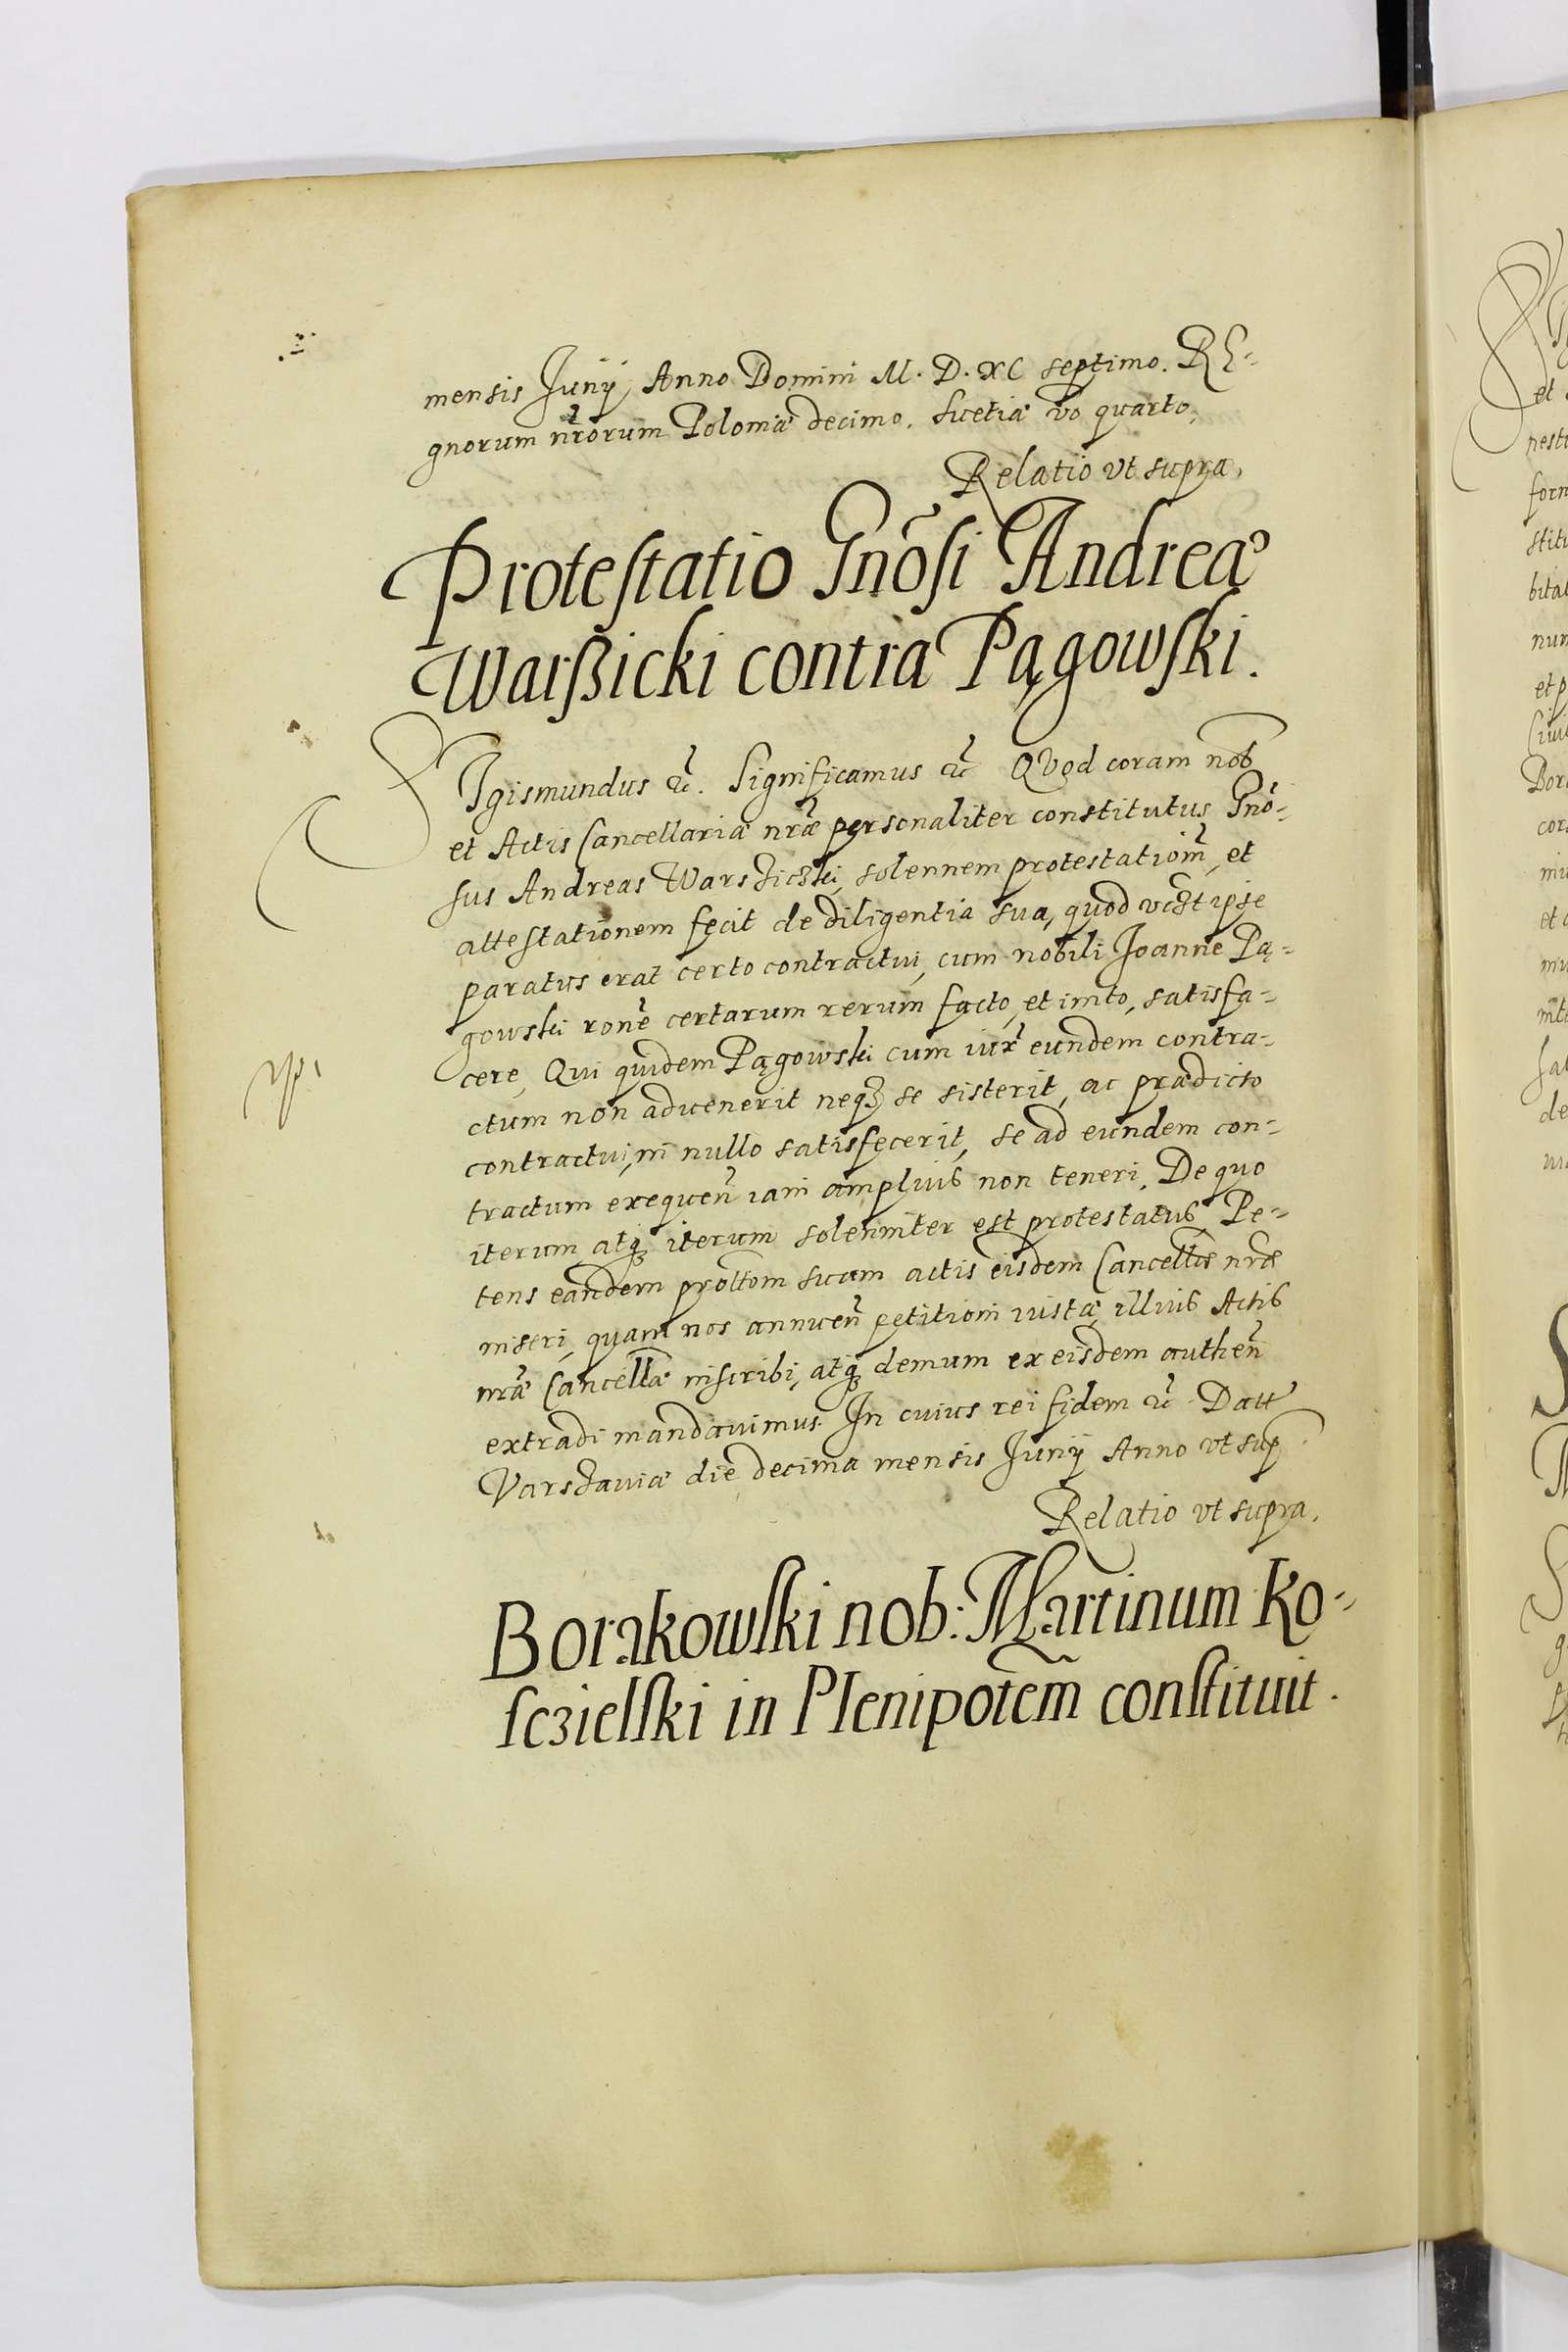 mensis Junij Anno Domini M. D. XC septimo. RE-
gnorum nrõrum Poloniæ decimo. Suetiæ vo quarto.
Relatio vt supra.
Protestatio Gnõsi Andreæ
Warßicki contra Pągowski.
SIgismundus &c. Significamus &c Quod coram nob
et Actis Cancellariæ nræ personaliter constitutus Gnõ-
sus Andreas Warsziczki, solennem protestationẽ, et
attestationem fecit de diligentia sua, quod ipse
paratus erat certo contractui, cum nobili Joanne Pą-
gowski ronẽ certarum rerum facto, et inito, satisfa-
cere, Qui quidem Pągowski cum iux eundem contra-
ctum non aduenerit neqȝ se sisterit, ac prædicto
contractui, in nullo satisfecerit, se ad eundem con-
tractum exequeñ iam amplius non teneri. De quo
iterum atqȝ iterum solenniter est protestatus, Pe-
tens eandem prottom suam actis eisdem Cancellæ nræ
inseri, quam nos annueñ petitioni iustæ, illius Actis
nræ Cancellæ inscribi, atqȝ demum ex eisdem autheñ
extradi mandauimus. In cuius rei fidem &c Datt
Varszauiæ die decima mensis Junij Anno vt sup
Relatio vt supra.
Borakowski nob: Martinum Ko-
sczielski in Plenipotem̃ constituit.
et
pesta
form
stitu
bitat
num
et p
Ciui
Bor
cor
et
de